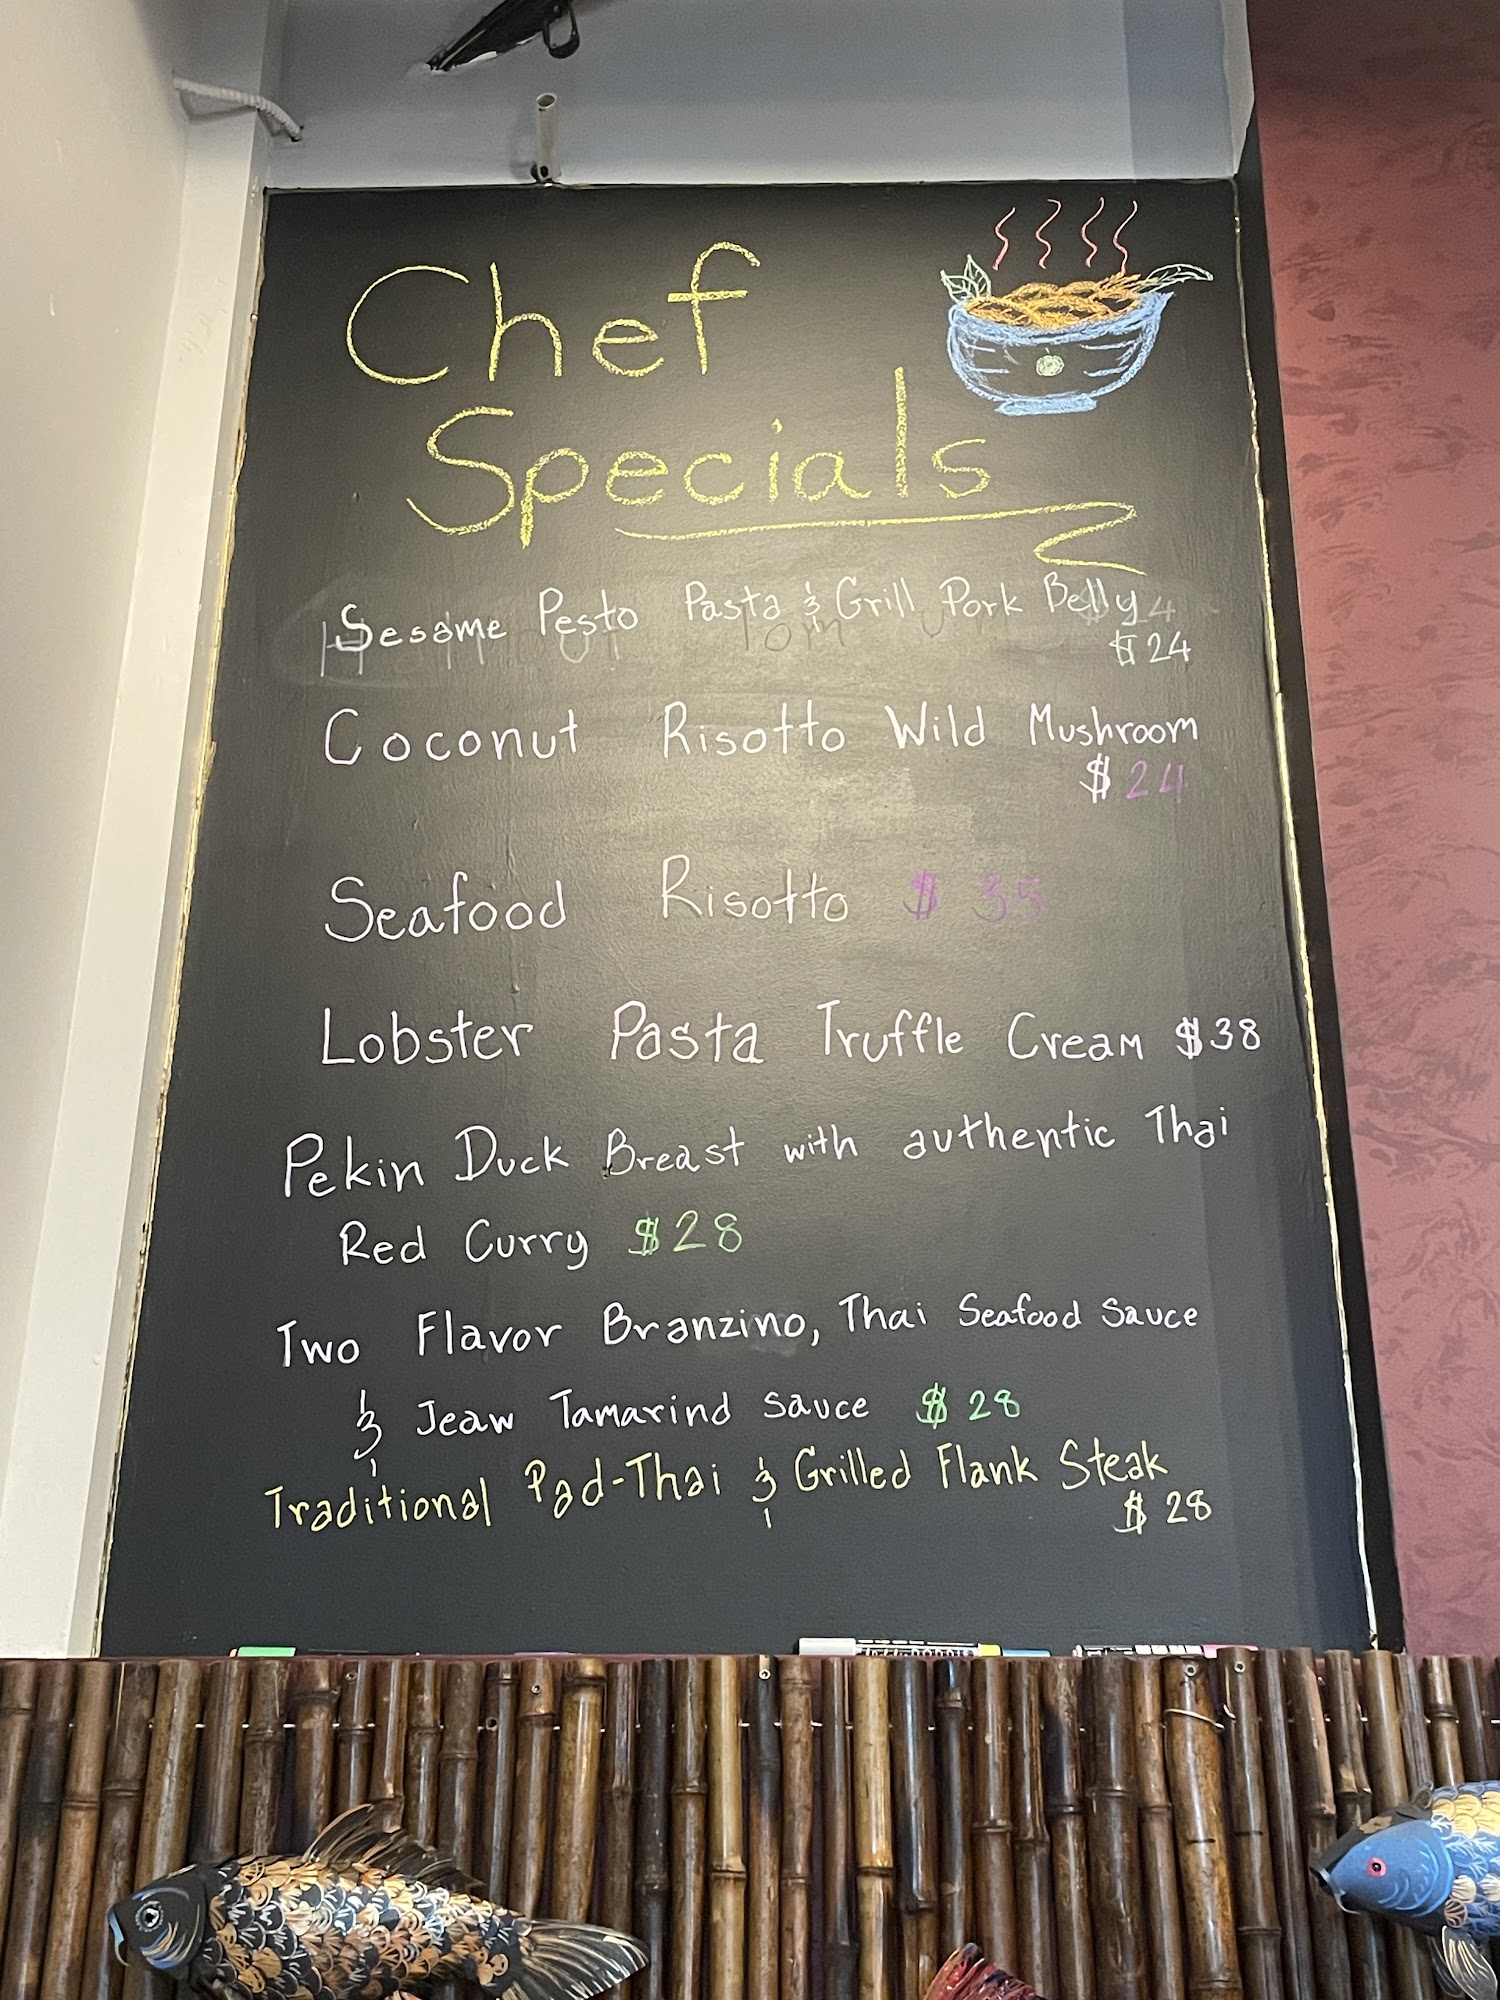 Chef
Specials
Sesame Pesto Pasta & Grill Pork Belly
$24
Coconut Risotto Wild Mushroom
$24
Seafood Risotto $35
Lobster Pasta Truffle Cream $38
Pekin Duck Breast with authentic Thai
Red Curry $28
Two Flavor Branzino, Thai Seafood Sauce
& Jeaw Tamarind sauce $28
Traditional Pad-Thai & Grilled Flank Steak
$28